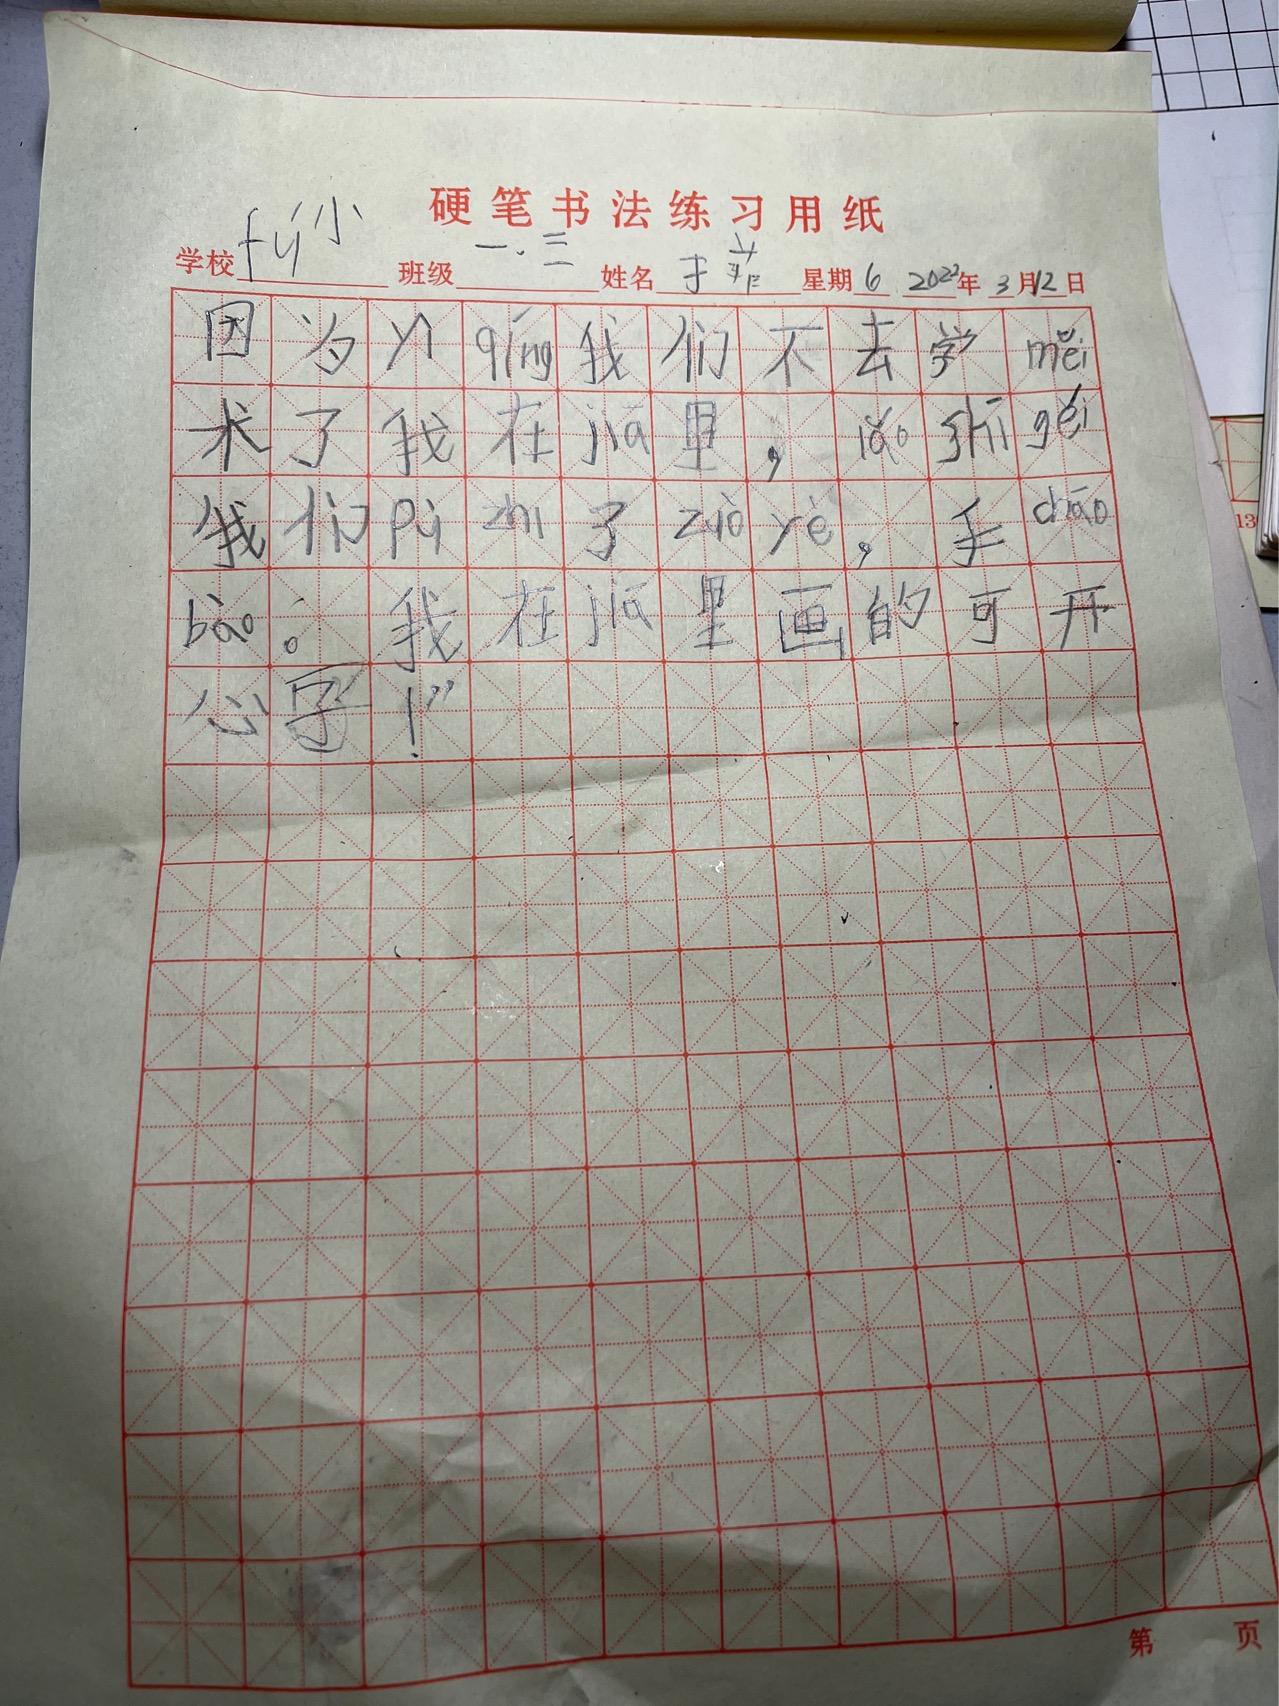 硬笔书法练习用纸
学校 fú小 班级 一.三 姓名 星期 6 2022年 3月12日
因为yìqíng我们不去学měi
术了我在jiā里，lǎo shī gěi
我们pù zhì了zuò yè，手chāo
bào。我在jiā里画的可开
心字！”
第 页
13